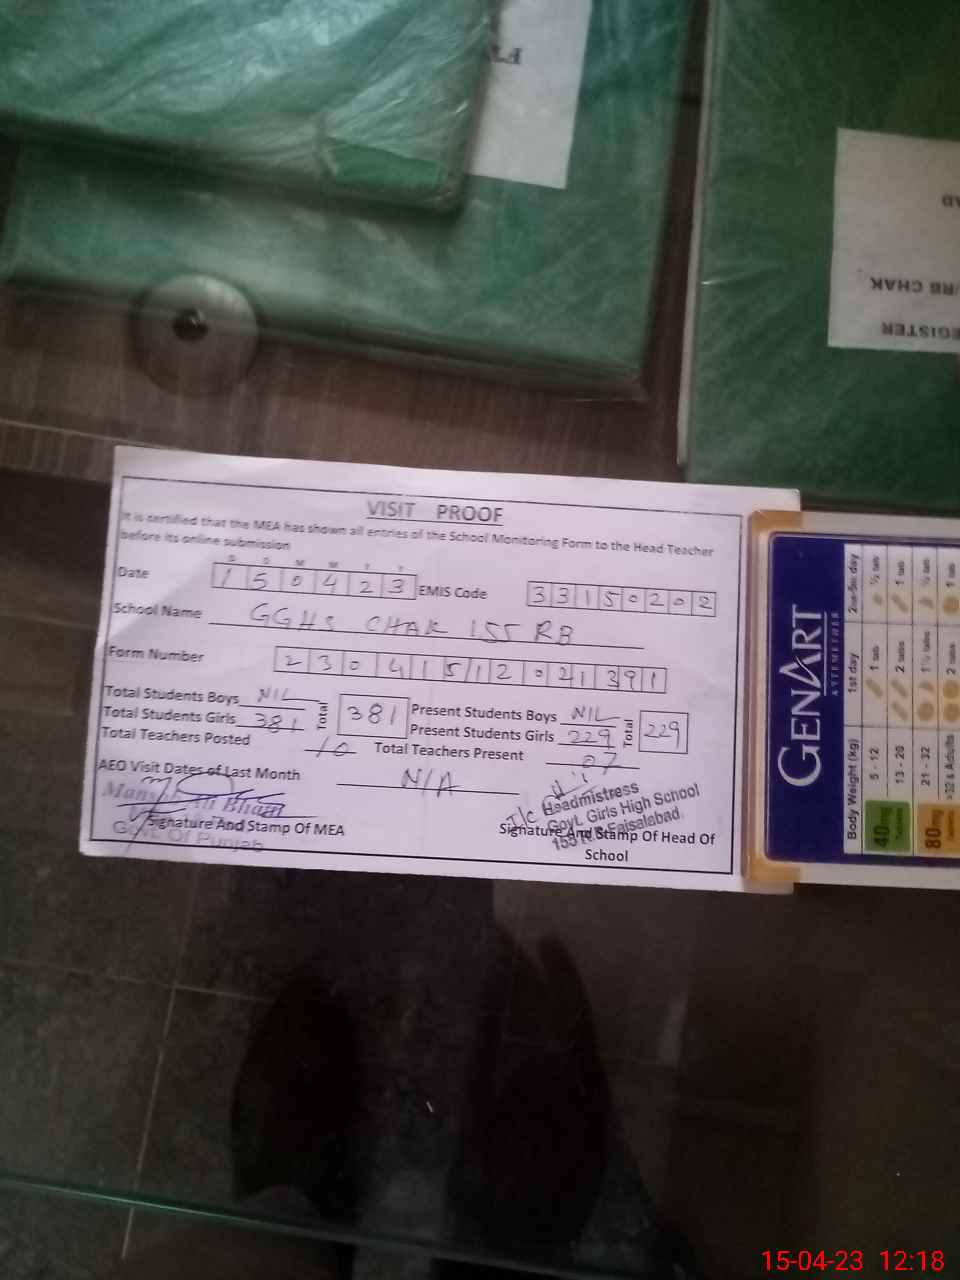 VISIT PROOF
It is certified that the MEA has shown all entries of the School Monitoring Form to the Head Teacher
before its online submission
D D M M Y Y
Date 150423 EMIS Code 33150202
School Name GGHS CHAK 155 RB
Form Number
Total Students Boys NIL Total 381 Present Students Boys NIL Total 229
Total Students Girls 381 Present Students Girls 229
Total Teachers Posted 10 Total Teachers Present 07
AEO Visit Dates of Last Month N/A
Signature And Stamp Of MEA
Govt. Of Punjab
I/C Headmistress
Govt. Girls High School
155 R.B Faisalabad
Signature And Stamp Of Head Of
School
GENART
ARTEMETHER
Body Weight (kg) 1st day 2nd-5th day
40mg 5 - 12 1 tab ½ tab
13 - 20 2 tabs 1 tab
80mg 21 - 32 1½ tabs ½ tab
>32 & Adults 2 tabs 1 tab
RB CHAK
EGISTER
15-04-23 12:18